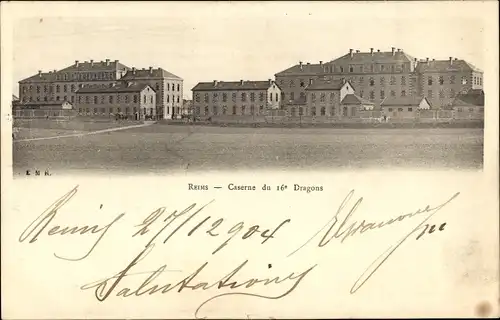 E M R.
REIMS — Caserne du 16e Dragons
Reims 27/12 904
Salutations